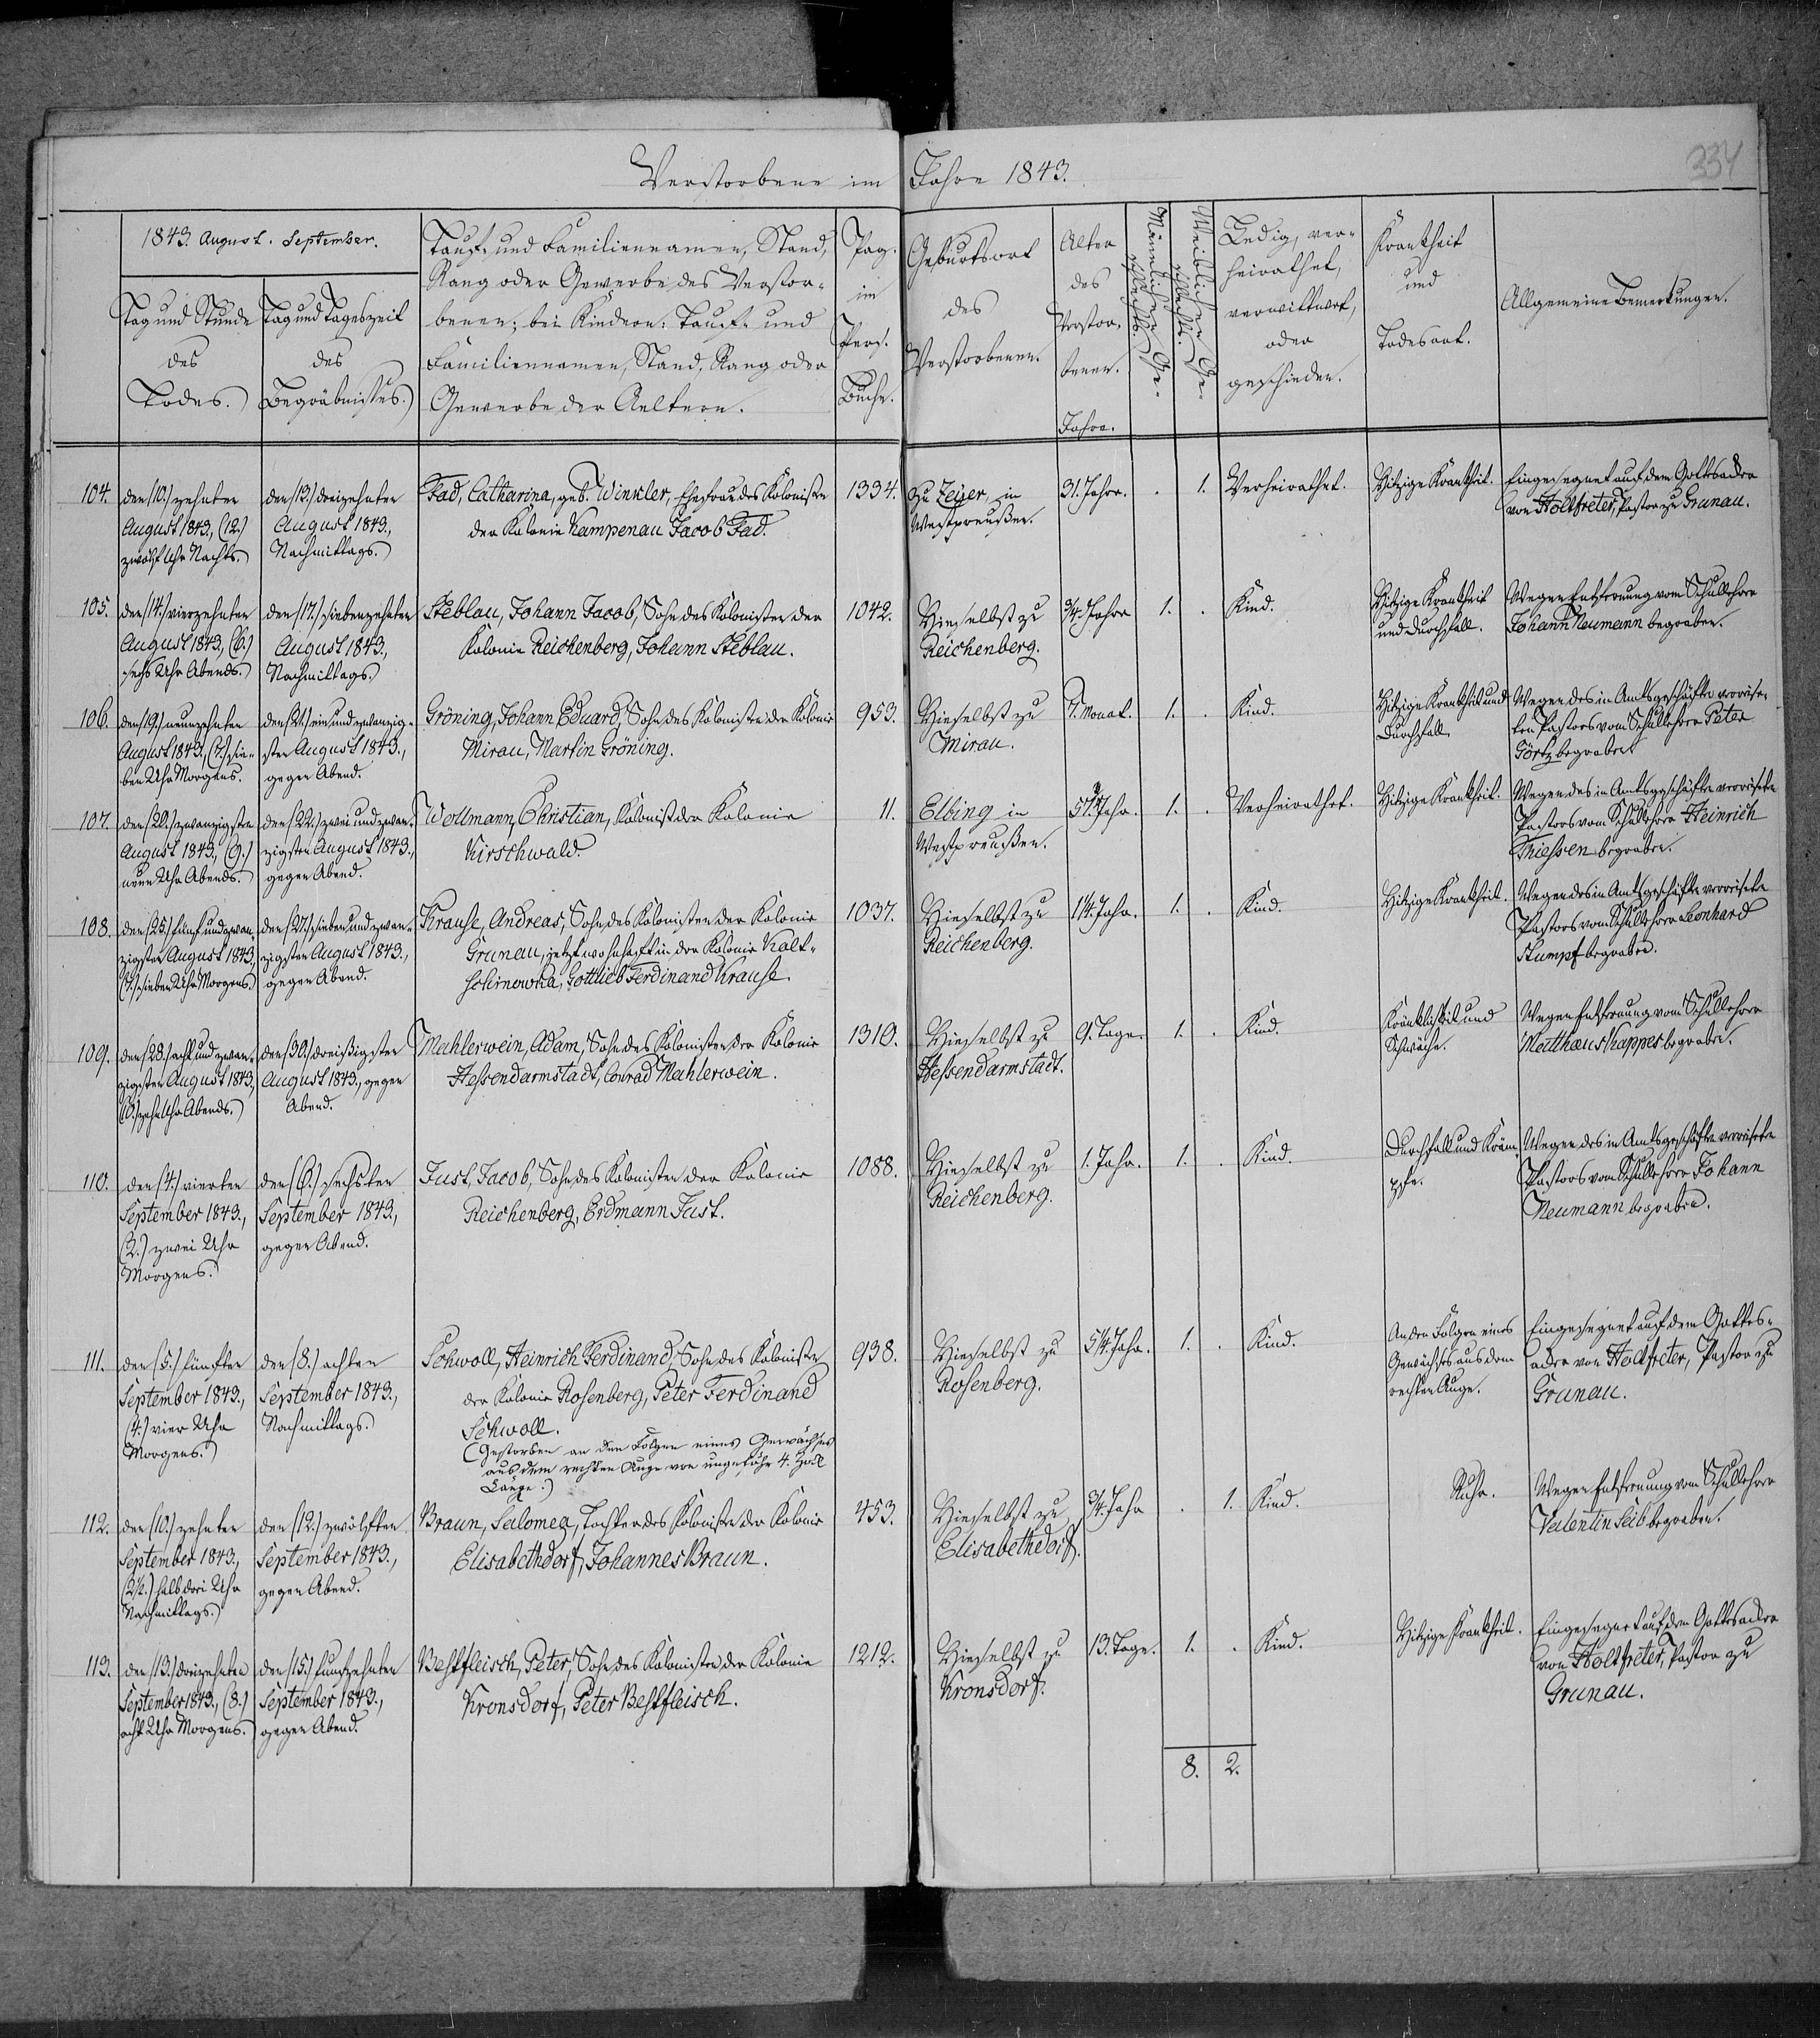 Verstorbene im Jahre 1843.
334
1843. August. September.
Tag und Stunde
des
Todes.
Tag und Tageszeit
des
Begräbnisses.
Tauf- und Familiennamen, Stand,
Rang oder Gewerbe des Verstor-
benen; bei Kindern: Tauf- und
Familiennamen, Stand, Rang oder
Gewerbe der Aeltern.
Pag.
im
Pers.
Buche.
Geburtsort
des
Verstorbenen.
Alter
des
Verstor-
benen.
Jahre.
Männlichen Ge-
schlechts.
Weiblichen Ge-
schlechts.
Ledig, ver-
heirathet,
verwittwet,
oder
geschieden.
Krankheit
und
Todesart.
Allgemeine Bemerkungen.
104.
den (10.) zehnten
August 1843., (12.)
zwölf Uhr Nachts.
den (13.) dreizehnten
August 1843.,
Nachmittags.
Fad, Catharina, geb. Winkler, Ehefrau des Kolonisten
der Kolonie Kampenau Jacob Fad.
1334.
Zu Zeyer, in
Westpreußen.
31. Jahre.
. 1.
Verheirathet.
Hitzige Krankheit.
Eingesegnet auf dem Gottesacker
von Holtfreter, Pastor zu Grunau.
105.
den (14.) vierzehnten
August 1843., (6.)
sechs Uhr Abends.
den (17.) siebenzehnten
August 1843.,
Nachmittags.
Steblau, Johann Jacob, Sohn des Kolonisten der
Kolonie Reichenberg, Johann Steblau.
1042.
Hieselbst zu
Reichenberg.
3/4. Jahr
1. .
Kind.
Hitzige Krankheit
und Durchfall.
Wegen Entfernung vom Schullehrer
Johann Neumann begraben.
106.
den (19.) neunzehnten
August 1843., (7.) sie-
ben Uhr Morgens.
den (21.) ein und zwanzig-
sten August 1843.,
gegen Abend.
Gröning, Johann Eduard, Sohn des Kolonisten der Kolonie
Mirau, Martin Gröning.
953.
Hieselbst zu
Mirau.
Monat.
1. .
Kind.
Hitzige Krankheit und
Durchfall.
Wegen des in Amtsgeschäften verreise-
ten Pastors vom Schullehrer Peter
Görtz begraben.
107.
den (20.) zwanzigsten
August 1843., (9.)
neun Uhr Abends.
den (22.) zwei und zwan-
zigsten August 1843.,
gegen Abend.
Wollmann, Christian, Kolonist der Kolonie
Kirschwald.
11.
Elbing in
Westpreußen.
Jahr.
1. .
Verheirathet.
Hitzige Krankheit.
Wegen des in Amtsgeschäften verreiseten
Pastors vom Schullehrer Heinrich
Thiessen begraben.
108.
den (25.) fünf und zwan-
zigsten August 1843.,
(7.) sieben Uhr Morgens.
den (27.) sieben und zwan-
zigsten August 1843.,
gegen Abend.
Krause, Andreas, Sohn des Kolonisten der Kolonie
Grunau, jetzt wohnhaft in der Kolonie Kalt-
schinowka, Gottlieb Ferdinand Krause.
1037.
Hieselbst zu
Reichenberg.
1 1/4. Jahr.
1. .
Kind.
Hitzige Krankheit.
Wegen des in Amtsgeschäften verreiseten
Pastors vom Schullehrer Leonhard
Stumpf begraben.
109.
den (28.) acht und zwan-
zigsten August 1843.,
(10.) zehn Uhr Abends.
den (30.) dreißigsten
August 1843., gegen
Abend.
Mahlerwein, Adam, Sohn des Kolonisten der Kolonie
Hessendarmstadt, Conrad Mahlerwein.
1319.
Hieselbst zu
Hessendarmstadt.
9. Tage.
1. .
Kind.
Kränklichkeit und
Schwäche.
Wegen Entfernung vom Schullehrer
Matthaeus Kappes begraben.
110.
den (4.) vierten
September 1843.,
(2.) zwei Uhr
Morgens.
den (6.) sechsten
September 1843.,
gegen Abend.
Just, Jacob, Sohn des Kolonisten der Kolonie
Reichenberg, Erdmann Just.
1088.
Hieselbst zu
Reichenberg.
1. Jahr.
1. .
Kind.
Durchfall und Kräm-
pfe.
Wegen des in Amtsgeschäften verreiseten
Pastors vom Schullehrer Johann
Neumann begraben.
111.
den (5.) fünften
September 1843.,
(4.) vier Uhr
Morgens.
den (8.) achten
September 1843.,
Nachmittags.
Schwoll, Heinrich Ferdinand, Sohn des Kolonisten
der Kolonie Rosenberg, Peter Ferdinand
Schwoll.
(Gestorben an den Folgen eines Gewächses
aus dem rechten Auge von ungefähr 4. Zoll
Länge.)
938.
Hieselbst zu
Rosenberg.
5 1/4. Jahr.
1. .
Kind.
An den Folgen eines
Gewächses aus dem
rechten Auge.
Eingesegnet auf dem Gottes-
acker von Holtfreter, Pastor zu
Grunau.
112.
den (10.) zehnten
September 1843.,
(2 1/2.) halb drei Uhr
Nachmittags.
den (12.) zwölften
September 1843.,
gegen Abend.
Braun, Salomea, Tochter des Kolonisten der Kolonie
Elisabethdorf, Johannes Braun.
453.
Hieselbst zu
Elisabethdorf.
3/4. Jahr
. 1.
Kind.
Ruhr.
Wegen Entfernung vom Schullehrer
Valentin Seib begraben.
113.
den (13.) dreizehnten
September 1843., (8.)
acht Uhr Morgens.
den (15.) funfzehnten
September 1843.,
gegen Abend.
Bestfleisch, Peter, Sohn des Kolonisten der Kolonie
Kronsdorf, Peter Bestfleisch.
1212.
Hieselbst zu
Kronsdorf.
13. Tage.
1. .
Kind.
Hitzige Krankheit.
Eingesegnet auf dem Gottesacker
von Holtfreter, Pastor zu
Grunau.
8. 2.